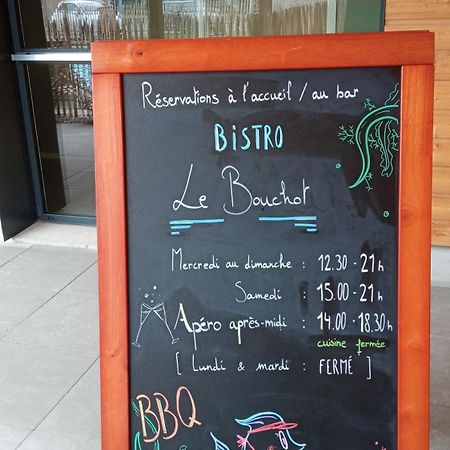 Réservations à l'accueil / au bar
BiSTRO
Le Bouchot
Mercredi au dimanche : 12.30 - 21h
Samedi : 15.00 - 21h
Apéro après-midi : 14.00 - 18.30h
cuisine fermée
[ Lundi & mardi : FERMÉ ]
BBQ